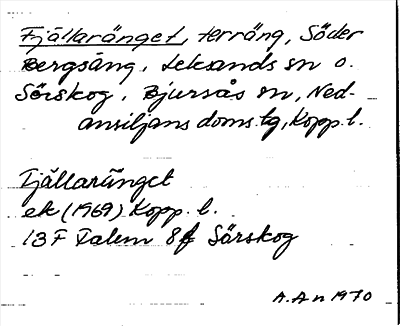 Fjällaränget, terräng, Söder
Bergsäng, Leksands sn o.
Sörskog, Bjursås sn, Ned-
ansiljans doms.tg, Kopp. l.
Fjällaränget
ek (1969) Kopp. l.
13 F Falun 8f Sörskog
A.An 1970